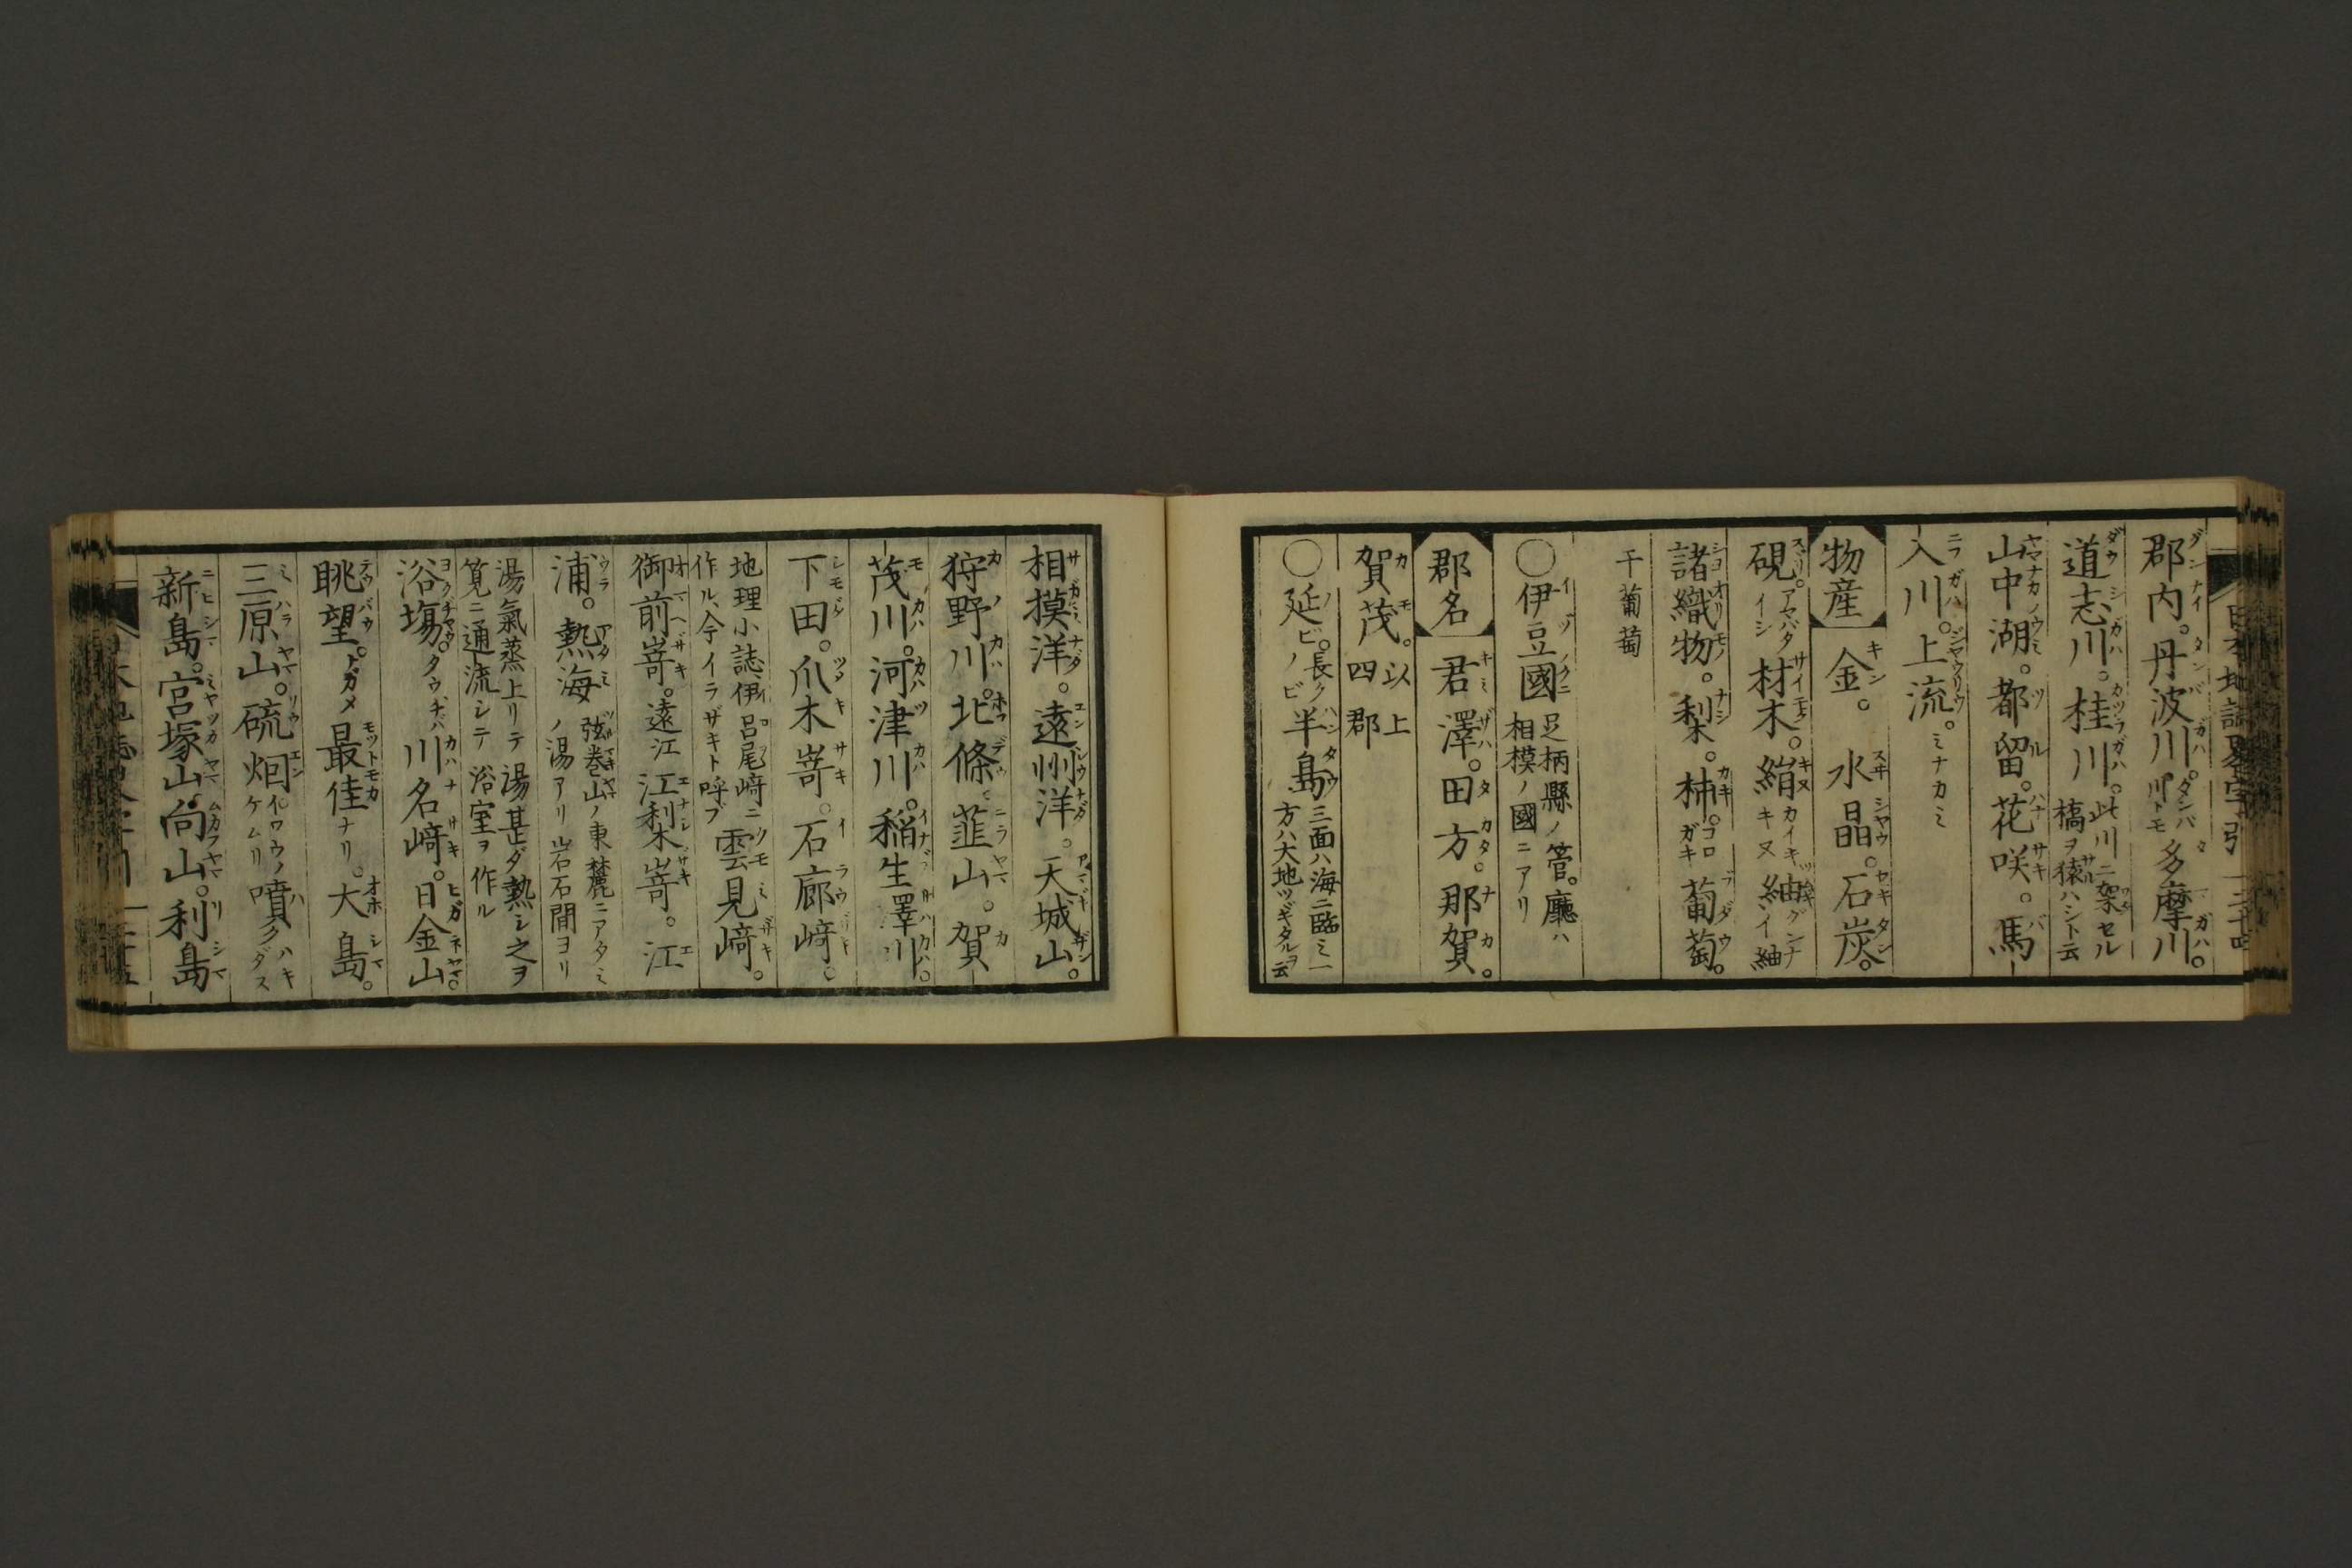 郡内。丹波川。タンバ川トモ 多摩川。
道志川。桂川。此川ニ架セル橋ヲ猿ハシト云
山中湖。都留。花咲。馬
入川。上流。ミナカミ
物産 金。水晶。石炭。
硯。アマバタイシ 材木。絹カイキキヌ 紬グンナイ紬
諸織物。梨。柿。コロガキ 葡萄。
干葡萄
〇伊豆國 足柄縣ノ管。廳ハ相模ノ國ニアリ
郡名 君澤。田方。那賀。
賀茂。以上四郡
〇延ビ。長クノビ 半島 三面ハ海ニ臨ミ一方ハ大地ツヾキタルヲ云
相摸洋。遠州洋。天城山。
狩野川。北條。韮山。賀
茂川。河津川。稲生澤川。
下田。爪木嵜。石廊﨑。
地理小誌伊呂尾﨑ニ作ル、今イラザキト呼ブ 雲見﨑。
御前嵜。遠江 江梨嵜。江
浦。熱海 弦巻山ノ東麓ニアタミノ湯アリ岩石間ヨリ
湯氣蒸上リテ湯甚ダ熱シ之ヲ筧ニ通流シテ浴室ヲ作ル
浴塲。タウヂバ 川名﨑。日金山。
眺望。ナガメ 最佳ナリ。大島。
三原山。硫烟。イワウノケムリ 噴クハキダス
新島。宮塚山。向山。利島